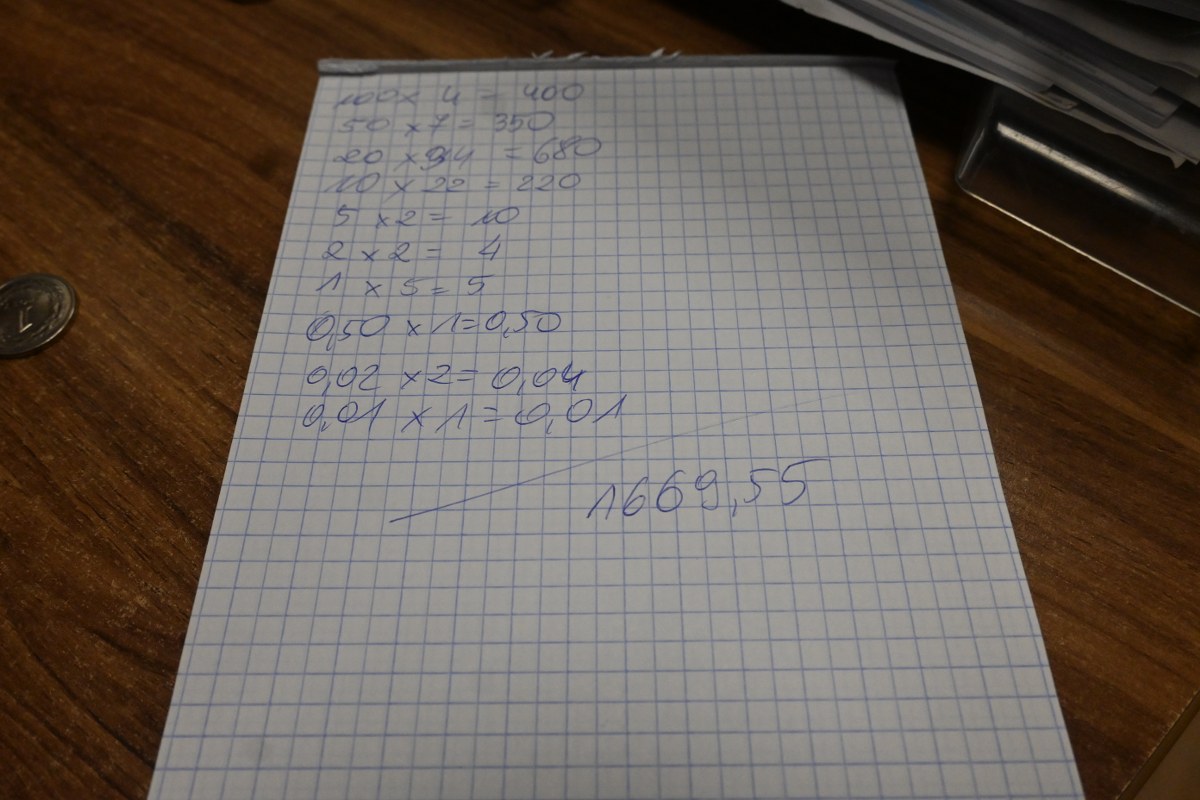 100 x 4 = 400
50 x 7 = 350
20 x 34 = 680
10 x 22 = 220
5 x 2 = 10
2 x 2 = 4
1 x 5 = 5
0,50 x 1 = 0,50
0,02 x 2 = 0,04
0,01 x 1 = 0,01
1669,55
1